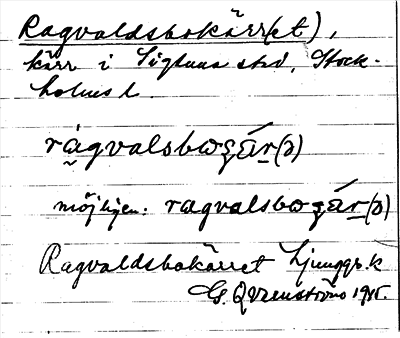 Ragvaldsbokärr(et),
kärr i Sigtuna stad, Stock-
holms l.
rágvalsbωʓá́r(ə)
möjligen: ragvalsbωʓá́r(ə)
Ragvaldsbokärret Ljunggr. k
G. Qvarnström 1915.